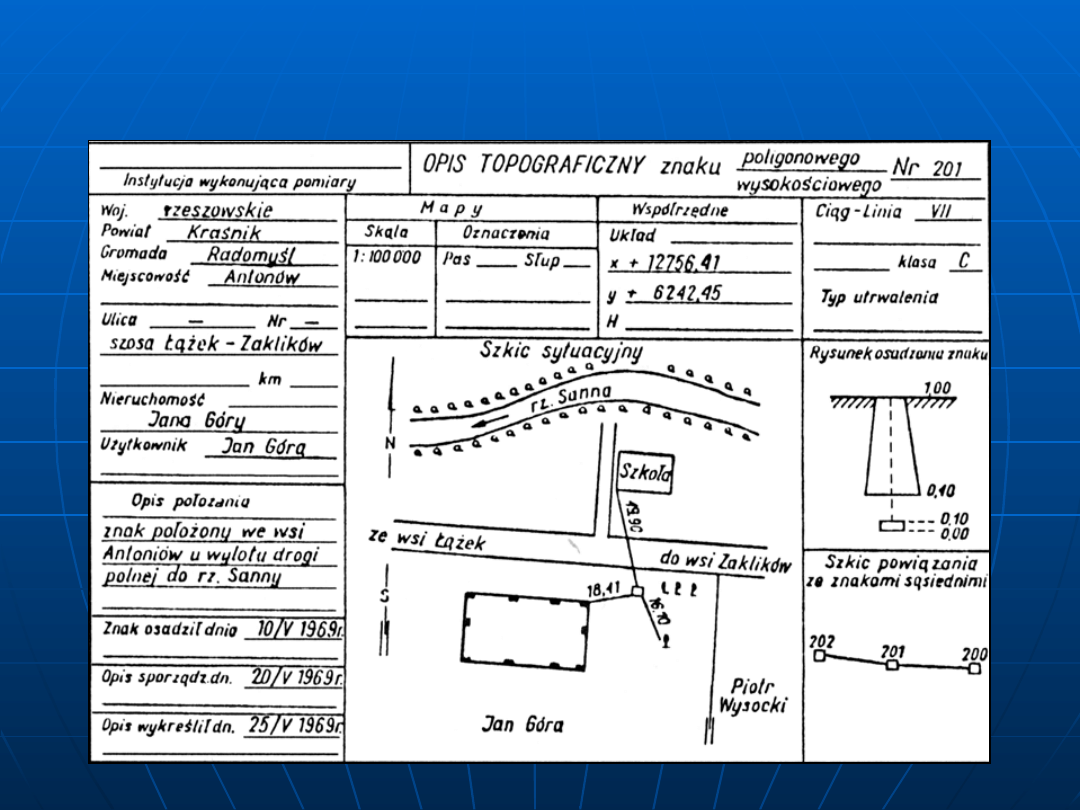 Instytucja wykonująca pomiary
OPIS TOPOGRAFICZNY znaku poligonowego
wysokościowego
Nr 201
Woj. rzeszowskie
Powiat Kraśnik
Gromada Radomyśl
Miejscowość Antonów
Ulica — Nr —
szosa Łążek - Zaklików
km
Nieruchomość
Jana Góry
Użytkownik Jan Góra
Opis położania
znak położony we wsi
Antoniów u wylotu drogi
polnej do rz. Sanny
Znak osadził dnia 10/V 1969r.
Opis sporządz. dn. 20/V 1969r.
Opis wykreślił dn. 25/V 1969r.
Mapy
Skala Oznaczenia
1:100 000 Pas Słup
Współrzędne
Układ
x + 12756,41
y + 6242,45
H
Ciąg - Linia VII
klasa C
Typ utrwalenia
Szkic sytuacyjny
rz. Sanna
N
Szkoła
13,90
ze wsi Łążek
do wsi Zaklików
S
18,41
16,70
Piotr
Wysocki
Jan Góra
Rysunek osadzania znaku
1,00
0,40
0,10
0,00
Szkic powiązania
ze znakami sąsiednimi
202
201
200